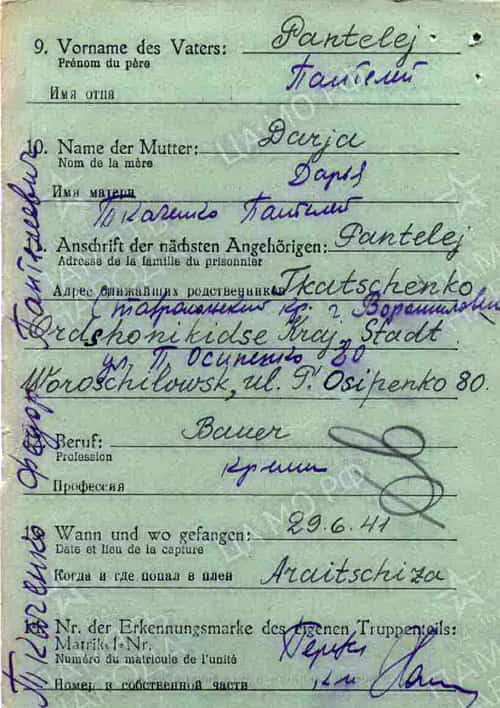 9. Vorname des Vaters: Pantelej
Prénom du père
Пантелей
Имя отца
10. Name der Mutter: Darja
Nom de la mère
Дарья
Имя матери
Ткаченко Пантелей
Anschrift der nächsten Angehörigen: Pantelej
Adresse de la famille du prisonnier
Адрес ближайших родственников Tkatschenko
Ставропольский кр. г. Ворошиловск
Ordshonikidse Kraj, Stadt
ул. П Осипенко 80
Woroschilowsk, ul. P. Osipenko 80.
Beruf: Bauer
Profession
крестьян
Профессия
Wann und wo gefangen: 29.6.41
Date et lieu de la capture
Когда и где попал в плен Araitschiza
Nr. der Erkennungsmarke des eigenen Truppenteils:
Matrikel-Nr.
Numéro du matricule de l'unité
Номер и собственной части
Ткаченко Федор Пантелеевич
ЦАМО РФ